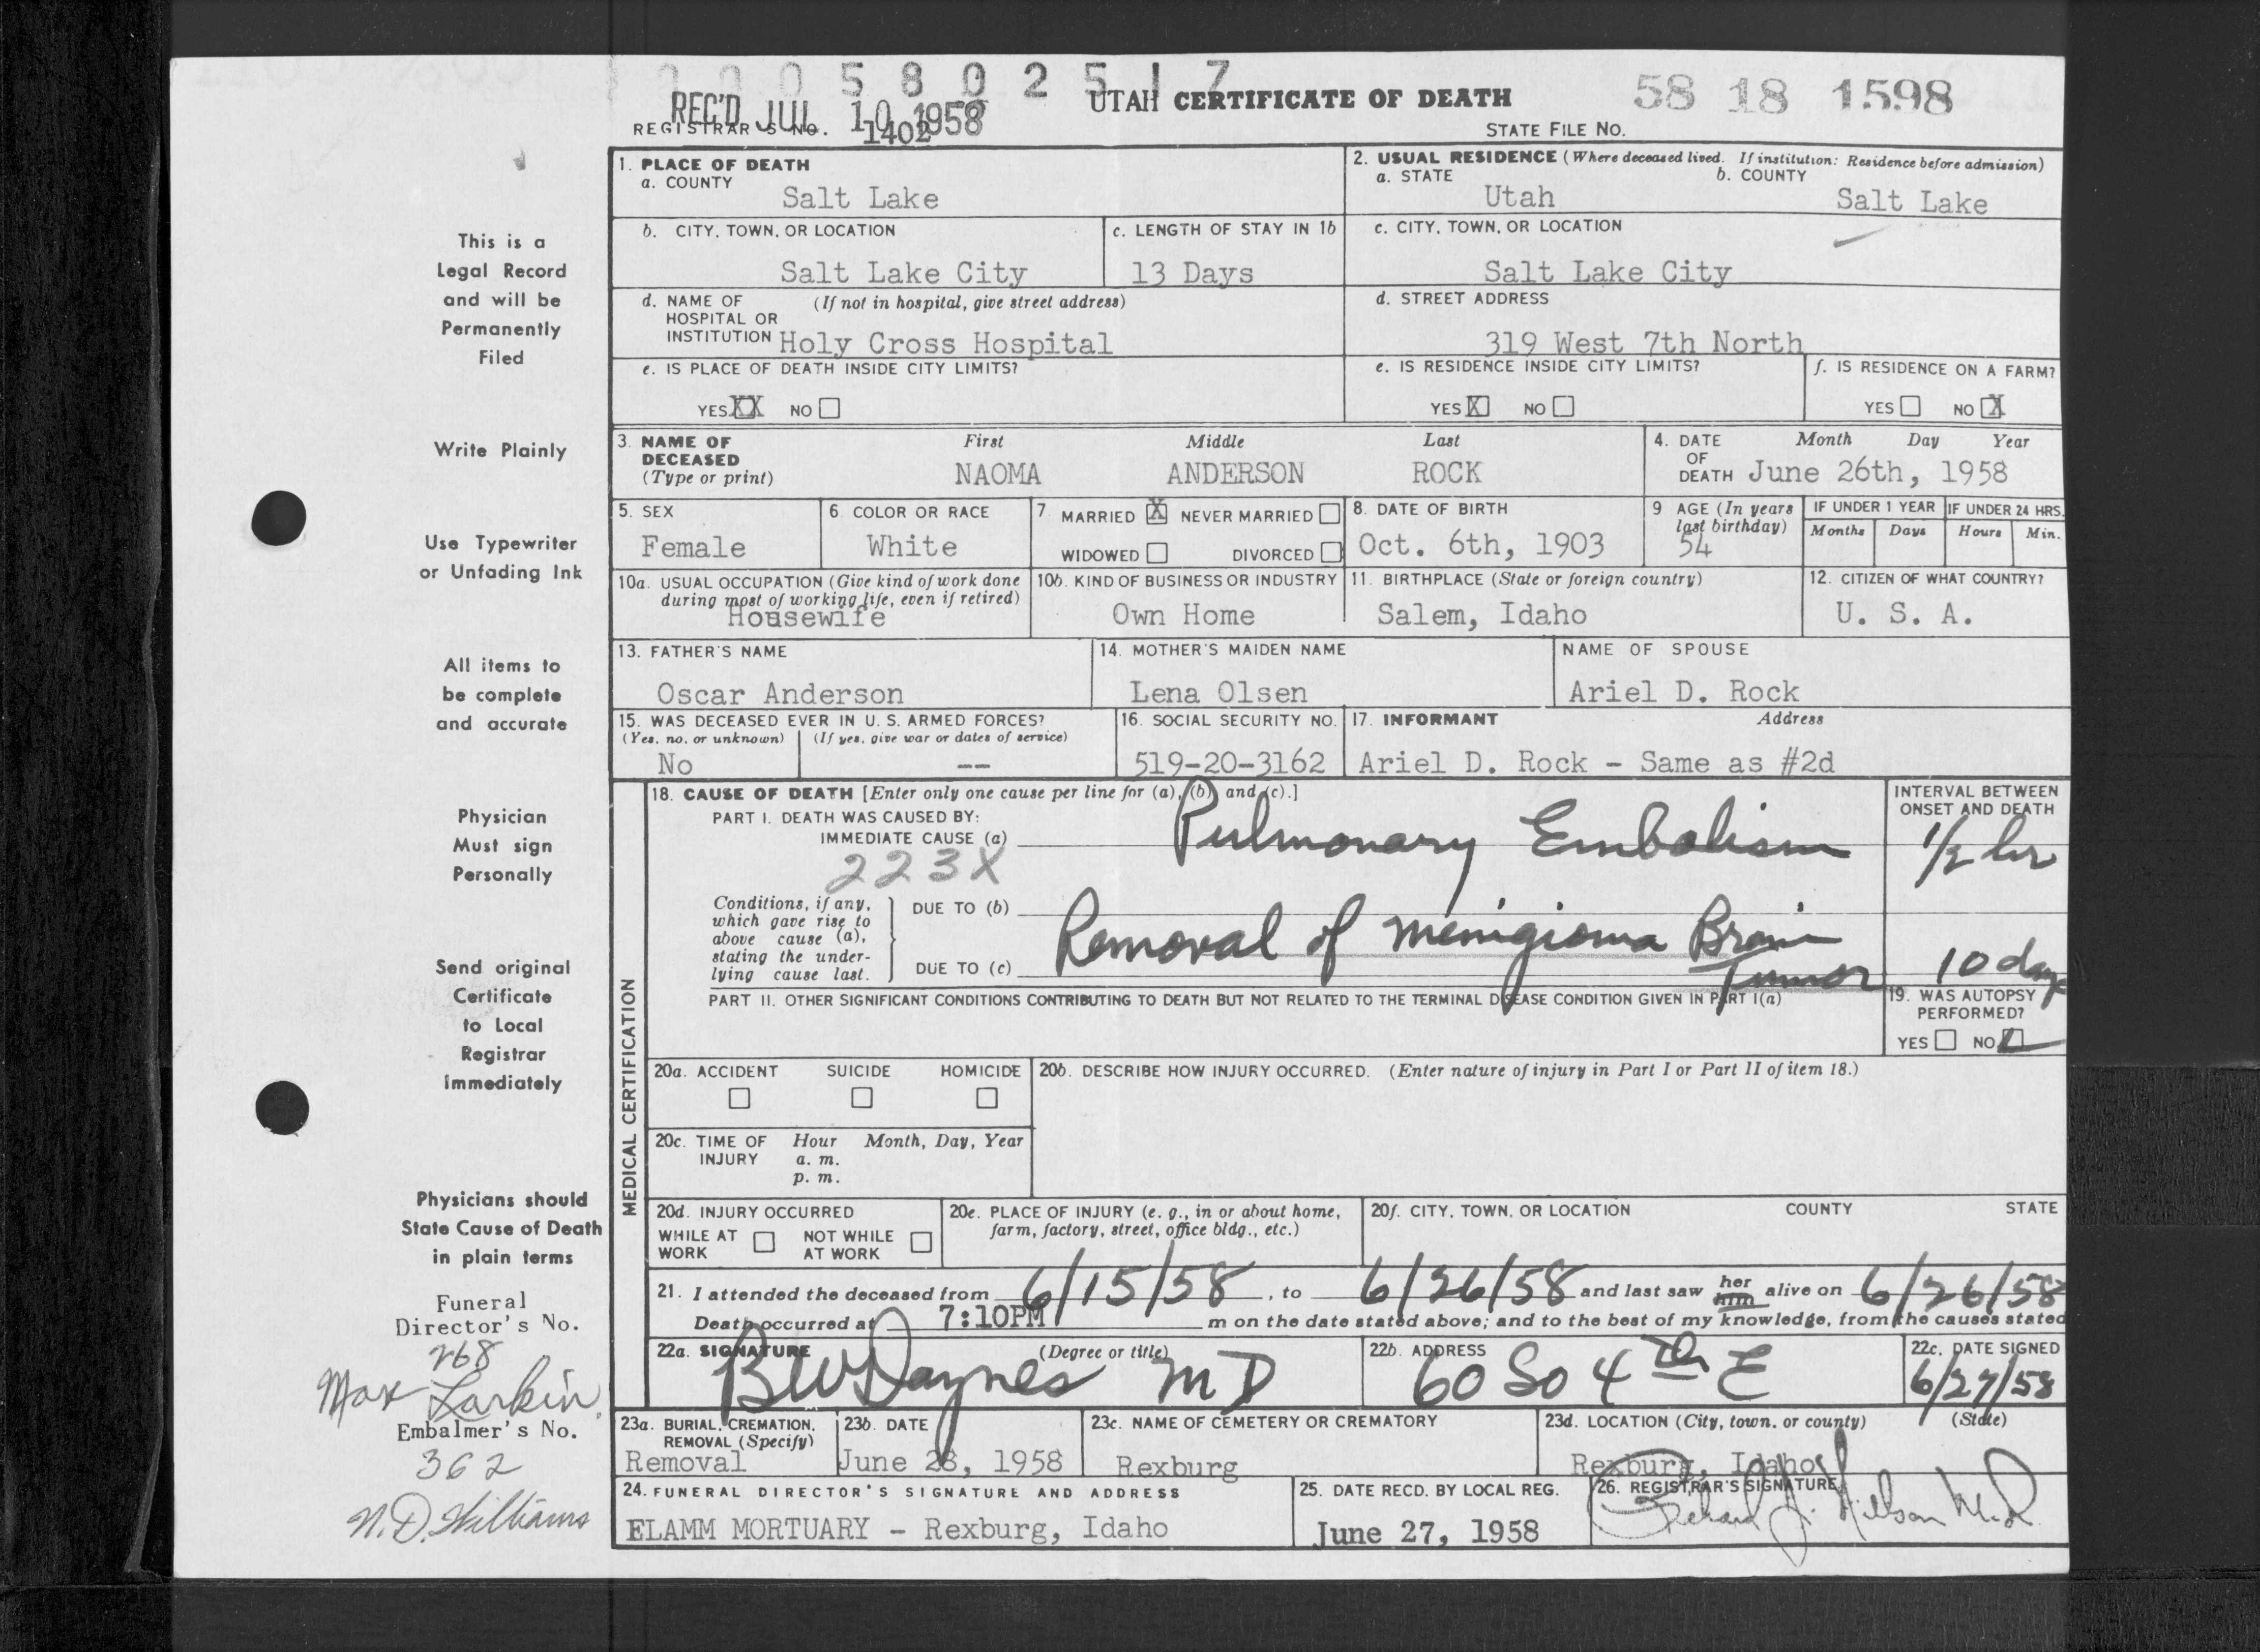 0 0 0 5 8 0 2 5 1 7
REC'D JUL 10 1958
UTAH CERTIFICATE OF DEATH
58 18 1598
REGISTRAR'S NO. 1402
STATE FILE NO.
This is a
Legal Record
and will be
Permanently
Filed
Write Plainly
Use Typewriter
or Unfading Ink
All items to
be complete
and accurate
Physician
Must sign
Personally
Send original
Certificate
to Local
Registrar
immediately
Physicians should
State Cause of Death
in plain terms
Funeral
Director's No.
268
Max Larkin
Embalmer's No.
362
N.D. Williams
1. PLACE OF DEATH
a. COUNTY
Salt Lake
2. USUAL RESIDENCE (Where deceased lived. If institution: Residence before admission)
a. STATE b. COUNTY
Utah Salt Lake
b. CITY, TOWN, OR LOCATION
Salt Lake City
c. LENGTH OF STAY IN 1b
13 Days
c. CITY, TOWN, OR LOCATION
Salt Lake City
d. NAME OF (If not in hospital, give street address)
HOSPITAL OR
INSTITUTION Holy Cross Hospital
d. STREET ADDRESS
319 West 7th North
e. IS PLACE OF DEATH INSIDE CITY LIMITS?
YES XX NO
e. IS RESIDENCE INSIDE CITY LIMITS?
YES X NO
f. IS RESIDENCE ON A FARM?
YES NO X
3. NAME OF DECEASED (Type or print)
First Middle Last
NAOMA ANDERSON ROCK
4. DATE OF DEATH
Month Day Year
June 26th, 1958
5. SEX
Female
6. COLOR OR RACE
White
7. MARRIED X NEVER MARRIED
WIDOWED DIVORCED
8. DATE OF BIRTH
Oct. 6th, 1903
9 AGE (In years last birthday)
54
IF UNDER 1 YEAR
Months Days
IF UNDER 24 HRS.
Hours Min.
10a. USUAL OCCUPATION (Give kind of work done
during most of working life, even if retired)
Housewife
10b. KIND OF BUSINESS OR INDUSTRY
Own Home
11. BIRTHPLACE (State or foreign country)
Salem, Idaho
12. CITIZEN OF WHAT COUNTRY?
U. S. A.
13. FATHER'S NAME
Oscar Anderson
14. MOTHER'S MAIDEN NAME
Lena Olsen
NAME OF SPOUSE
Ariel D. Rock
15. WAS DECEASED EVER IN U. S. ARMED FORCES?
(Yes, no, or unknown) (If yes, give war or dates of service)
No --
16. SOCIAL SECURITY NO.
519-20-3162
17. INFORMANT Address
Ariel D. Rock - Same as #2d
MEDICAL CERTIFICATION
18. CAUSE OF DEATH [Enter only one cause per line for (a), (b), and (c).]
PART I. DEATH WAS CAUSED BY:
IMMEDIATE CAUSE (a) Pulmonary Embolism
223X
INTERVAL BETWEEN
ONSET AND DEATH
1/2 hr
Conditions, if any,
which gave rise to
above cause (a),
stating the under-
lying cause last.
DUE TO (b)
Removal of Menigioma Brain
Tumor
DUE TO (c)
10 days
PART II. OTHER SIGNIFICANT CONDITIONS CONTRIBUTING TO DEATH BUT NOT RELATED TO THE TERMINAL DISEASE CONDITION GIVEN IN PART I(a)
19. WAS AUTOPSY
PERFORMED?
YES NO
20a. ACCIDENT SUICIDE HOMICIDE
20b. DESCRIBE HOW INJURY OCCURRED. (Enter nature of injury in Part I or Part II of item 18.)
20c. TIME OF INJURY
Hour Month, Day, Year
a. m.
p. m.
20d. INJURY OCCURRED
WHILE AT WORK NOT WHILE AT WORK
20e. PLACE OF INJURY (e. g., in or about home,
farm, factory, street, office bldg., etc.)
20f. CITY, TOWN, OR LOCATION COUNTY STATE
21. I attended the deceased from 6/15/58, to 6/26/58 and last saw her him alive on 6/26/58
Death occurred at 7:10PM m on the date stated above; and to the best of my knowledge, from the causes stated
22a. SIGNATURE (Degree or title)
BW Daynes MD
22b. ADDRESS
60 So 4th E
22c. DATE SIGNED
6/27/58
23a. BURIAL, CREMATION,
REMOVAL (Specify)
Removal
23b. DATE
June 28, 1958
23c. NAME OF CEMETERY OR CREMATORY
Rexburg
23d. LOCATION (City, town, or county) (State)
Rexburg, Idaho
24. FUNERAL DIRECTOR'S SIGNATURE AND ADDRESS
ELAMM MORTUARY - Rexburg, Idaho
25. DATE RECD. BY LOCAL REG.
June 27, 1958
26. REGISTRAR'S SIGNATURE
Richard J. Nilson M.D.